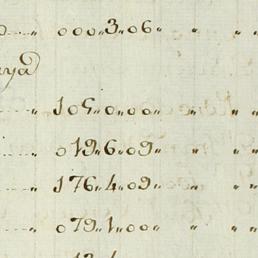 000,,3,,06,, ,, ,, ,,
aya
105,,0,,00,, ,, ,, ,,
019,,6,,09,, ,, ,, ,,
176,,4,,09,, ,, ,, ,,
079,,1,,00,, ,, ,, ,,